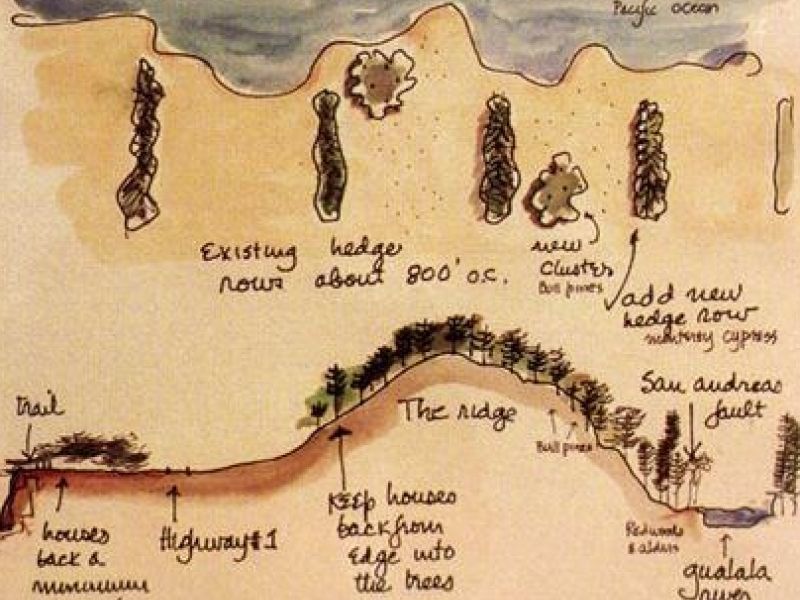 Pacific ocean
Existing hedge
rows about 800' o.c.
new
cluster
Bull pines
add new
hedge row
monterey cypress
San andreas
fault
Trail
The ridge
Bull pines
houses
back a
minimum
Highway #1
Keep houses
back from
edge into
the trees
Redwoods
& alders
gualala
river